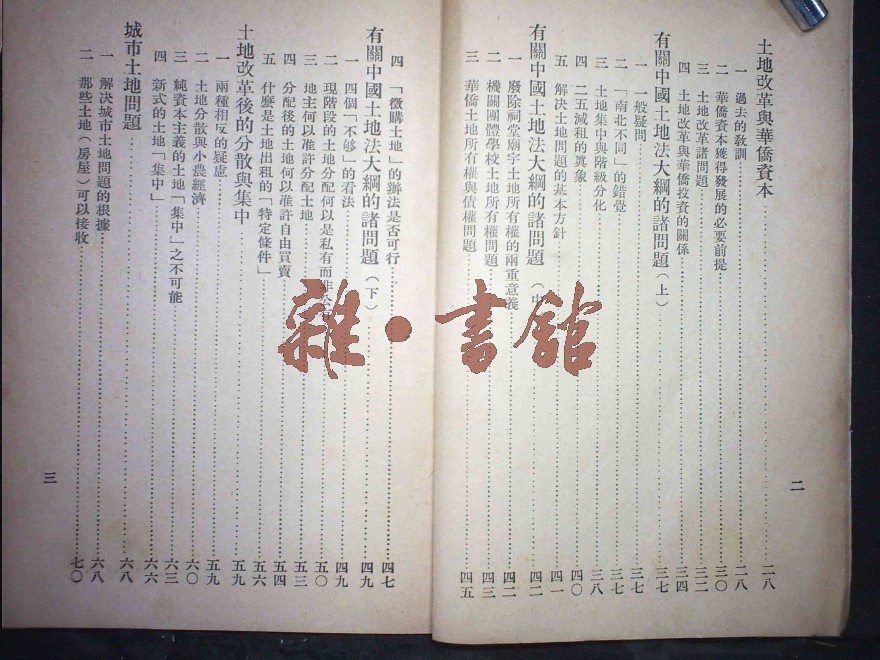 土地改革與華僑資本 二八
一 過去的敎訓 二八
二 華僑資本獲得發展的必要前提 三〇
三 土地改革諸問題 三二
四 土地改革與華僑投資的關係 三四
有關中國土地法大綱的諸問題(上) 三七
一 一般疑問 三七
二 「南北不同」的錯覺 三七
三 土地集中與階級分化 三八
四 二五減租的眞象 四〇
五 解決土地問題的基本方針 四一
有關中國土地法大綱的諸問題(中 四二
一 廢除祠堂廟宇土地所有權的兩重意義 四二
二 機關團體學校土地所有權問題 四三
三 華僑土地所有權與債權問題 四五
二
四 「徵購土地」的辦法是否可行 四七
有關中國土地法大綱的諸問題(下) 四九
一 四個「不够」的看法 四九
二 現階段的土地分配何以是私有而非 五〇
三 地主何以准許分配土地 五三
四 分配後的土地何以准許自由買賣 五四
五 什麼是土地出租的「特定條件」 五六
土地改革後的分散與集中 五九
一 兩種相反的疑慮 五九
二 土地分散與小農經濟 六〇
三 純資本主義的土地「集中」之不可能 六三
四 新式的土地「集中」 六六
城市土地問題 六八
一 解決城市土地問題的根據 六八
二 那些土地(房屋)可以接收 七〇
三
雜·書館